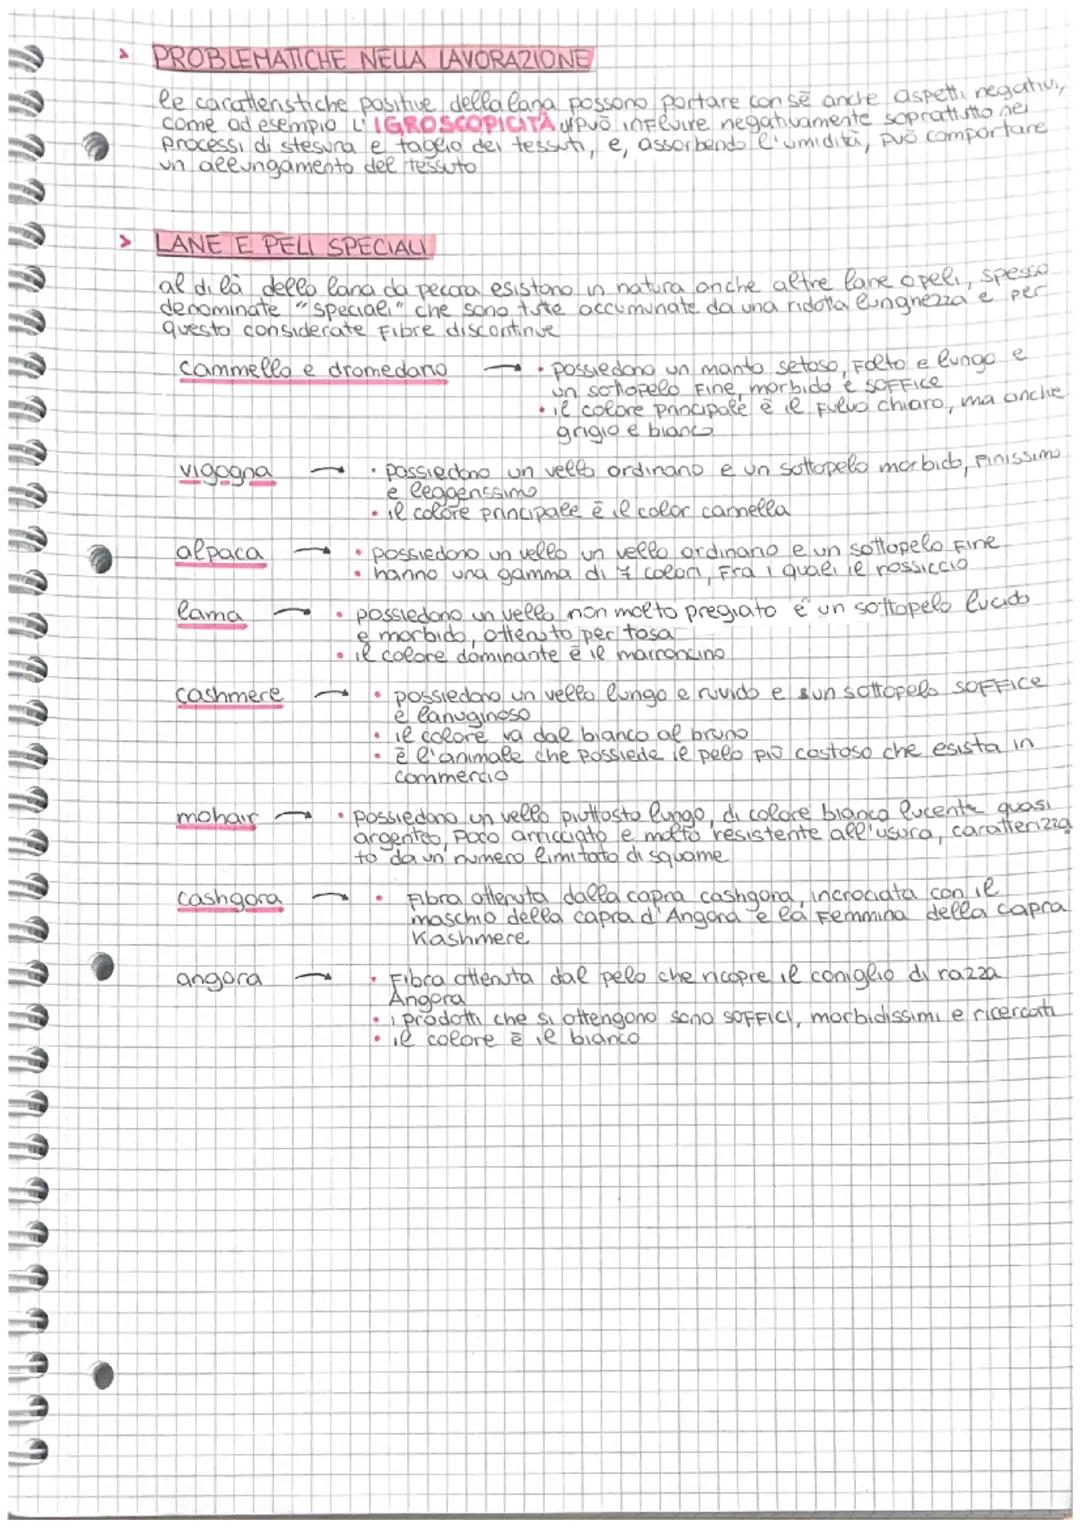 > PROBLEMATICHE NELLA LAVORAZIONE
le caratteristiche positive della lana possono portare con sé anche aspetti negativi,
come ad esempio L'IGROSCOPICITÀ può influire negativamente soprattutto nei
processi di stesura e taglio dei tessuti, e, assorbendo l'umidità, può comportare
un allungamento del tessuto
> LANE E PELI SPECIALI
al di là della lana da pecora esistono in natura anche altre lane o peli, spesso
denominate "speciali" che sono tutte accumunate da una ridotta lunghezza e per
questo considerate fibre discontinue
cammello e dromedario → • possiedono un manto setoso, folto e lungo e
un sottopelo fine, morbido e soffice
• il colore principale è il fulvo chiaro, ma anche
grigio e bianco
vigogna → • possiedono un vello ordinario e un sottopelo morbido, finissimo
e leggerissimo
• il colore principale è il color cannella
alpaca → • possiedono un vello un vello ordinario e un sottopelo fine
• hanno una gamma di 7 colori, fra i quali il rossiccio
lama → • possiedono un vello non molto pregiato e un sottopelo lucido
e morbido, ottenuto per tosa
• il colore dominante è il marroncino
cashmere → • possiedono un vello lungo e ruvido e un sottopelo soffice
e lanuginoso
• il colore va dal bianco al bruno
• è l'animale che possiede il pelo più costoso che esista in
commercio
mohair → • possiedono un vello piuttosto lungo, di colore bianco lucente quasi
argenteo, poco arricciato e molto resistente all'usura, caratterizza
to da un numero limitato di squame
cashgora → • fibra ottenuta dalla capra cashgora, incrociata con il
maschio della capra d'Angora e la femmina della capra
Kashmere
angora → • Fibra ottenuta dal pelo che ricopre il coniglio di razza
Angora
• i prodotti che si ottengono sono soffici, morbidissimi e ricercati
• il colore è il bianco